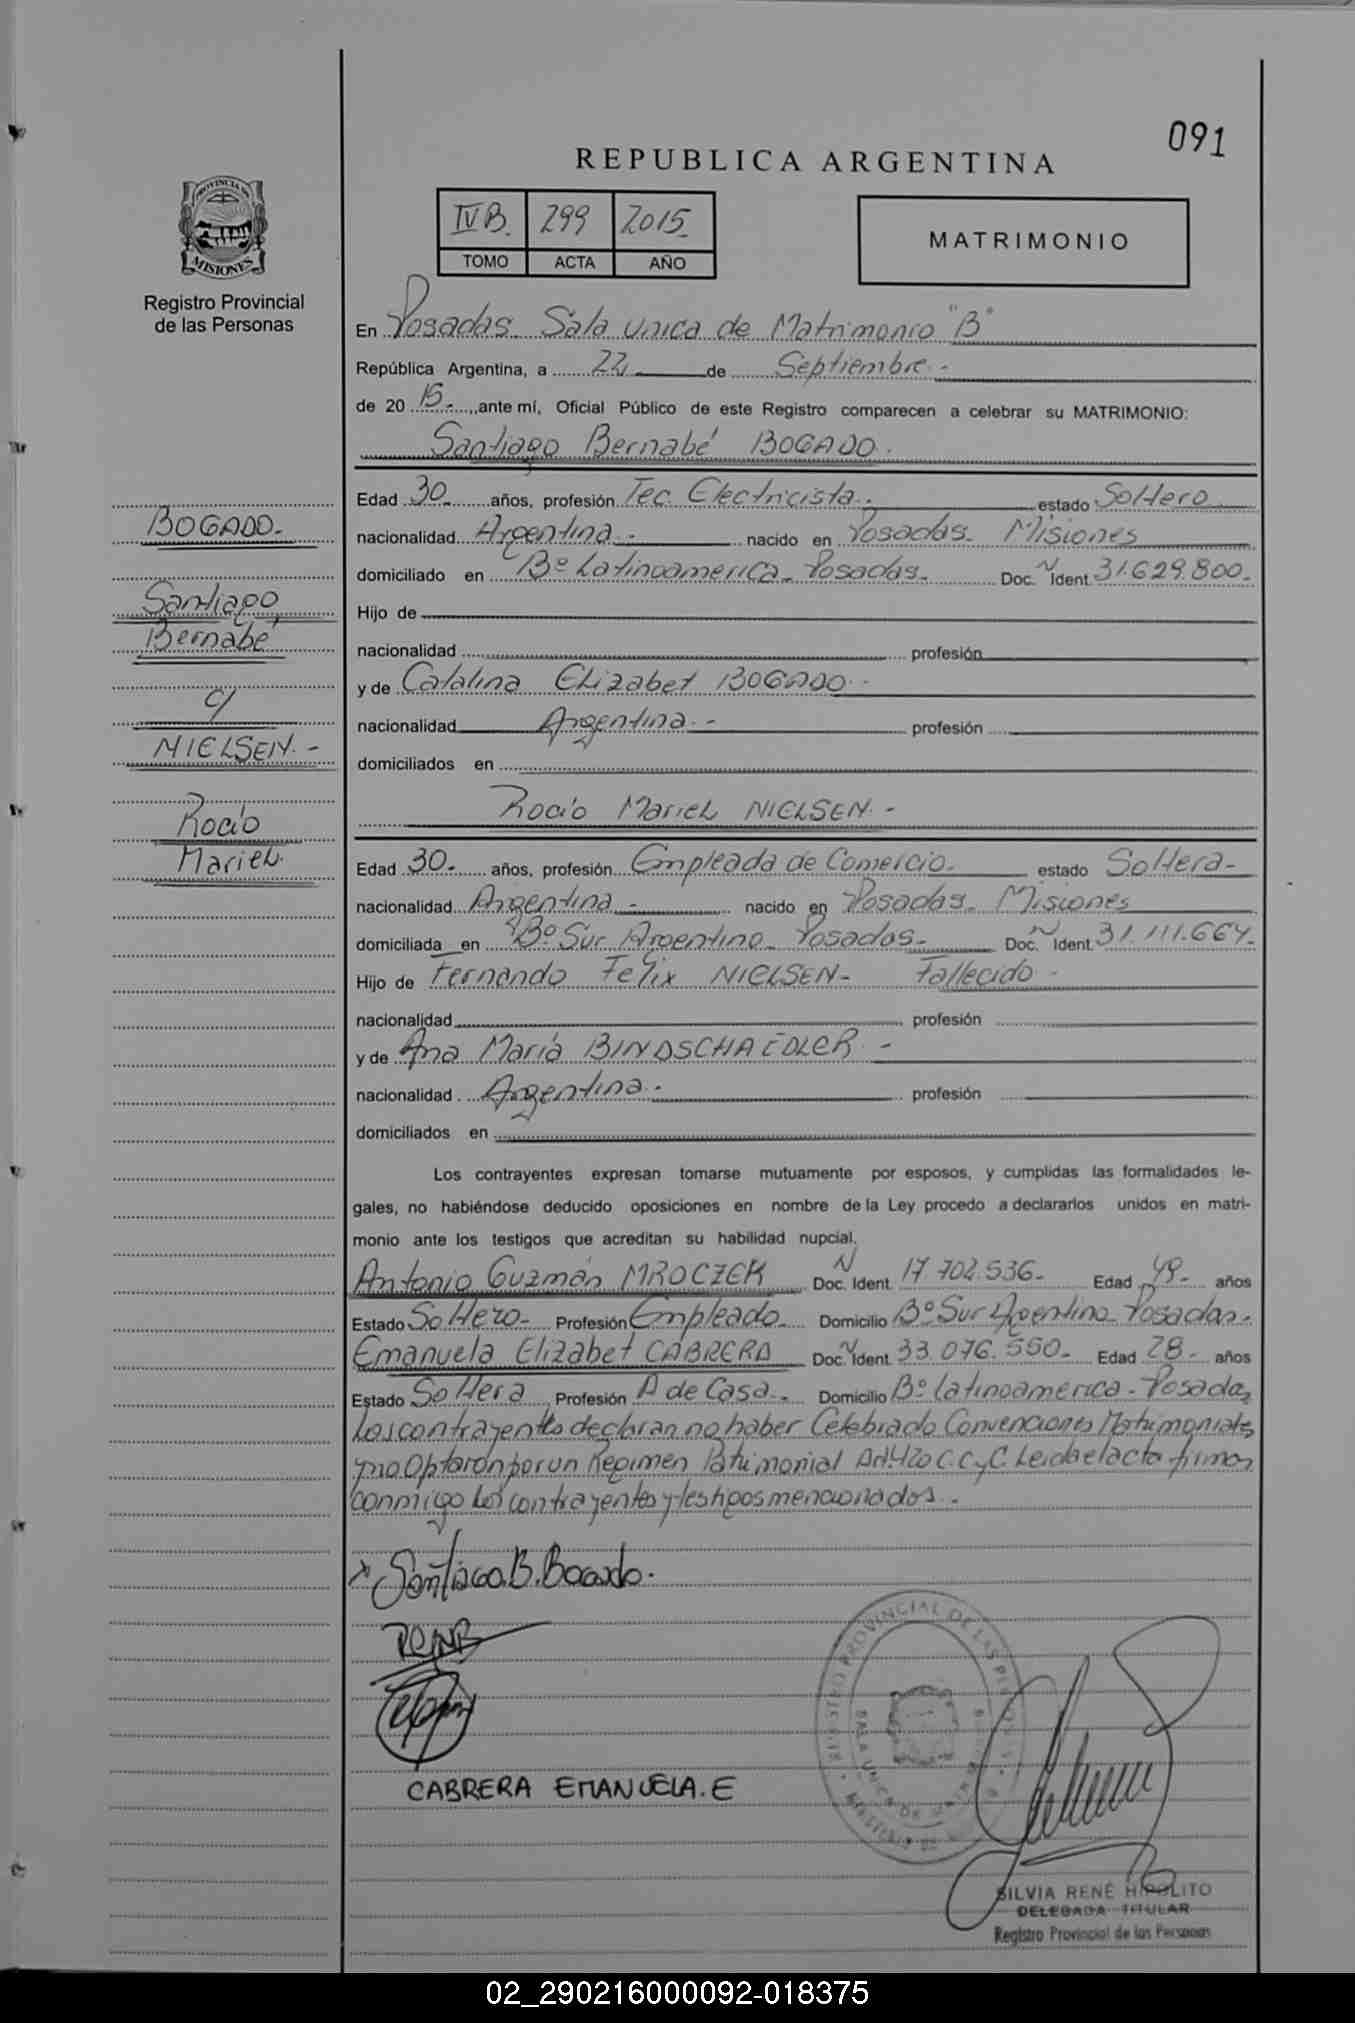 091
REPUBLICA ARGENTINA
IV B. 299 2015
TOMO ACTA AÑO
MATRIMONIO
PROVINCIA DE
MISIONES
Registro Provincial
de las Personas
En Posadas Sala unica de Matrimonio "B"
República Argentina, a 22 de Septiembre.-
de 20 15.- ,,ante mí, Oficial Público de este Registro comparecen a celebrar su MATRIMONIO:
Santiago Bernabé BOGADO.
Edad 30 años, profesión Tec. Electricista. estado Soltero
nacionalidad Argentina.- nacido en Posadas. Misiones
domiciliado en Bº Latinoamerica. Posadas. Doc. N Ident. 31.629.800.
Hijo de
nacionalidad profesión
y de Catalina Elizabet BOGADO.-
nacionalidad Argentina.- profesión
domiciliados en
BOGADO.-
Santiago
Bernabé
c/
NIELSEN.-
Rocio
Mariel.
Rocío Mariel NIELSEN.-
Edad 30.- años, profesión Empleada de Comercio. estado Soltera-
nacionalidad Argentina.- nacido en Posadas. Misiones
domiciliada en Bº Sur Argentino. Posadas. Doc. N Ident. 31.111.664.
Hijo de Fernando Felix NIELSEN- Fallecido-
nacionalidad profesión
y de Ana María BINDSCHAEDLER.-
nacionalidad Argentina.- profesión
domiciliados en
Los contrayentes expresan tomarse mutuamente por esposos, y cumplidas las formalidades le-
gales, no habiéndose deducido oposiciones en nombre de la Ley procedo a declararlos unidos en matri-
monio ante los testigos que acreditan su habilidad nupcial.
Antonio Guzmán MROCZEK Doc. N Ident. 17.702.536.- Edad 49.- años
Estado Soltero.- Profesión Empleado. Domicilio Bº Sur Argentino. Posadas.
Emanuela Elizabet CABRERA Doc. N Ident. 33.076.550.- Edad 28.- años
Estado Soltera Profesión A de Casa.- Domicilio Bº Latinoamerica - Posadas
Los contrayentes declaran no haber Celebrado Convenciones Matrimoniales
y no Optaron por un Regimen Patrimonial Art 420 C.C.y C. Leida el acta firman
conmigo los contrayentes y testigos mencionados.-
x Santiago.B.Bogado.
CABRERA EMANUELA.E
REGISTRO PROVINCIAL DE LAS PERSONAS
SALA UNICA DE
MISIONES
SILVIA RENÉ HIPOLITO
DELEGADA TITULAR
Registro Provincial de las Personas
02_290216000092-018375